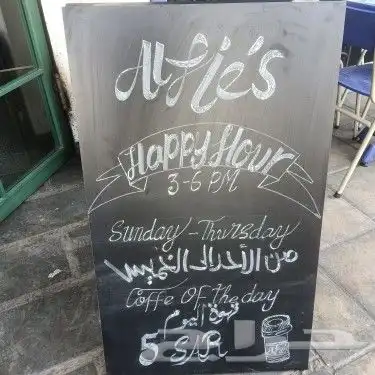 Alfie's
Happy Hour
3-6 PM
Sunday - Thursday
من الأحد إلى الخميس
Coffe OF the day
قهوة اليوم
5 SAR
حراج